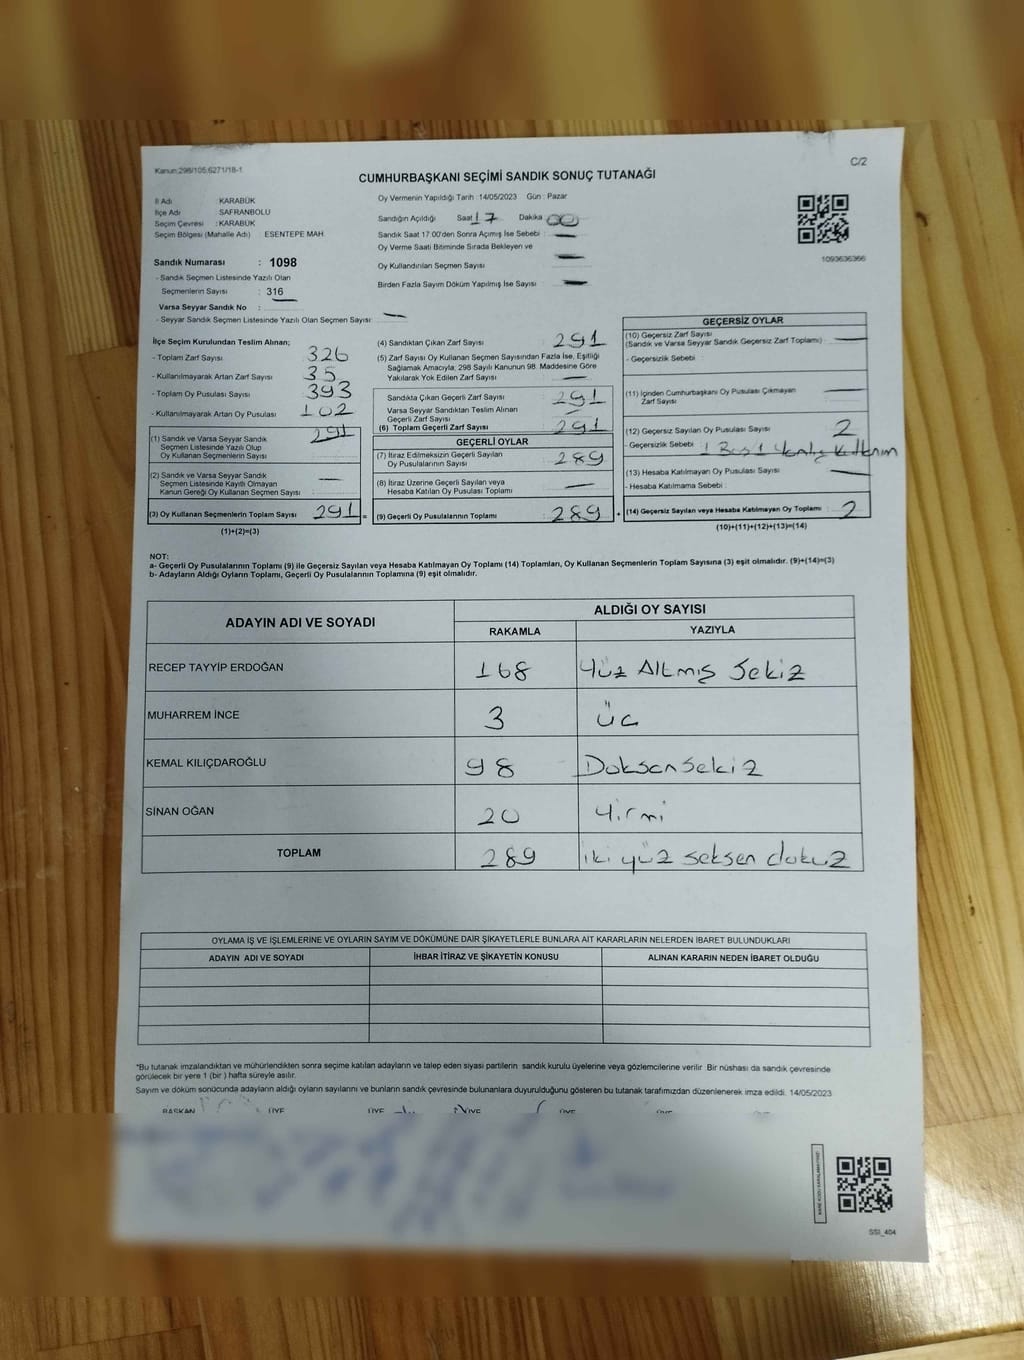 Kanun:298/105;6271/18-1
C/2
CUMHURBAŞKANI SEÇİMİ SANDIK SONUÇ TUTANAĞI
İl Adı : KARABÜK
İlçe Adı : SAFRANBOLU
Seçim Çevresi : KARABÜK
Seçim Bölgesi (Mahalle Adı) : ESENTEPE MAH.
Sandık Numarası : 1098
- Sandık Seçmen Listesinde Yazılı Olan
Seçmenlerin Sayısı : 316
Varsa Seyyar Sandık No :
- Seyyar Sandık Seçmen Listesinde Yazılı Olan Seçmen Sayısı: —
Oy Vermenin Yapıldığı Tarih : 14/05/2023 Gün : Pazar
Sandığın Açıldığı Saat 17 Dakika 00
Sandık Saat 17:00'den Sonra Açımış İse Sebebi : —
Oy Verme Saati Bitiminde Sırada Bekleyen ve
Oy Kullandırılan Seçmen Sayısı —
Birden Fazla Sayım Döküm Yapılmış İse Sayısı —
1093636366
İlçe Seçim Kurulundan Teslim Alınan;
- Toplam Zarf Sayısı 326
- Kullanılmayarak Artan Zarf Sayısı 35
- Toplam Oy Pusulası Sayısı 393
- Kullanılmayarak Artan Oy Pusulası 102
(1) Sandık ve Varsa Seyyar Sandık 291
Seçmen Listesinde Yazılı Olup
Oy Kullanan Seçmenlerin Sayısı
(2) Sandık ve Varsa Seyyar Sandık —
Seçmen Listesinde Kayıtlı Olmayan
Kanun Gereği Oy Kullanan Seçmen Sayısı :
(3) Oy Kullanan Seçmenlerin Toplam Sayısı 291 =
(1)+(2)=(3)
(4) Sandıktan Çıkan Zarf Sayısı 291
(5) Zarf Sayısı Oy Kullanan Seçmen Sayısından Fazla İse, Eşitliği
Sağlamak Amacıyla; 298 Sayılı Kanunun 98. Maddesine Göre
Yakılarak Yok Edilen Zarf Sayısı —
Sandıkta Çıkan Geçerli Zarf Sayısı 291
Varsa Seyyar Sandıktan Teslim Alınan
Geçerli Zarf Sayısı —
(6) Toplam Geçerli Zarf Sayısı 291
GEÇERLİ OYLAR
(7) İtiraz Edilmeksizin Geçerli Sayılan
Oy Pusulalarının Sayısı 289
(8) İtiraz Üzerine Geçerli Sayılan veya
Hesaba Katılan Oy Pusulası Toplamı —
(9) Geçerli Oy Pusulalarının Toplamı 289 +
GEÇERSİZ OYLAR
(10) Geçersiz Zarf Sayısı
(Sandık ve Varsa Seyyar Sandık Geçersiz Zarf Toplamı) —
- Geçersizlik Sebebi :
(11) İçinden Cumhurbaşkanı Oy Pusulası Çıkmayan
Zarf Sayısı —
(12) Geçersiz Sayılan Oy Pusulası Sayısı 2
- Geçersizlik Sebebi : 1 Boş 1 Yanlış Kullanım
(13) Hesaba Katılmayan Oy Pusulası Sayısı —
- Hesaba Katılmama Sebebi :
(14) Geçersiz Sayılan veya Hesaba Katılmayan Oy Toplamı : 2
(10)+(11)+(12)+(13)=(14)
NOT:
a- Geçerli Oy Pusulalarının Toplamı (9) ile Geçersiz Sayılan veya Hesaba Katılmayan Oy Toplamı (14) Toplamları, Oy Kullanan Seçmenlerin Toplam Sayısına (3) eşit olmalıdır. (9)+(14)=(3)
b- Adayların Aldığı Oyların Toplamı, Geçerli Oy Pusulalarının Toplamına (9) eşit olmalıdır.
ADAYIN ADI VE SOYADI
ALDIĞI OY SAYISI
RAKAMLA YAZIYLA
RECEP TAYYİP ERDOĞAN 168 Yüz Altmış Sekiz
MUHARREM İNCE 3 Üç
KEMAL KILIÇDAROĞLU 98 Doksan Sekiz
SİNAN OĞAN 20 Yirmi
TOPLAM 289 iki yüz seksen dokuz
OYLAMA İŞ VE İŞLEMLERİNE VE OYLARIN SAYIM VE DÖKÜMÜNE DAİR ŞİKAYETLERLE BUNLARA AİT KARARLARIN NELERDEN İBARET BULUNDUKLARI
ADAYIN ADI VE SOYADI İHBAR İTİRAZ VE ŞİKAYETİN KONUSU ALINAN KARARIN NEDEN İBARET OLDUĞU
*Bu tutanak imzalandıktan ve mühürlendikten sonra seçime katılan adayların ve talep eden siyasi partilerin sandık kurulu üyelerine veya gözlemcilerine verilir. Bir nüshası da sandık çevresinde
görülecek bir yere 1 (bir ) hafta süreyle asılır.
Sayım ve döküm sonucunda adayların aldığı oyların sayılarını ve bunların sandık çevresinde bulunanlara duyurulduğunu gösteren bu tutanak tarafımızdan düzenlenerek imza edildi. 14/05/2023
BAŞKAN ÜYE ÜYE ÜYE ÜYE ÜYE
SSI_404